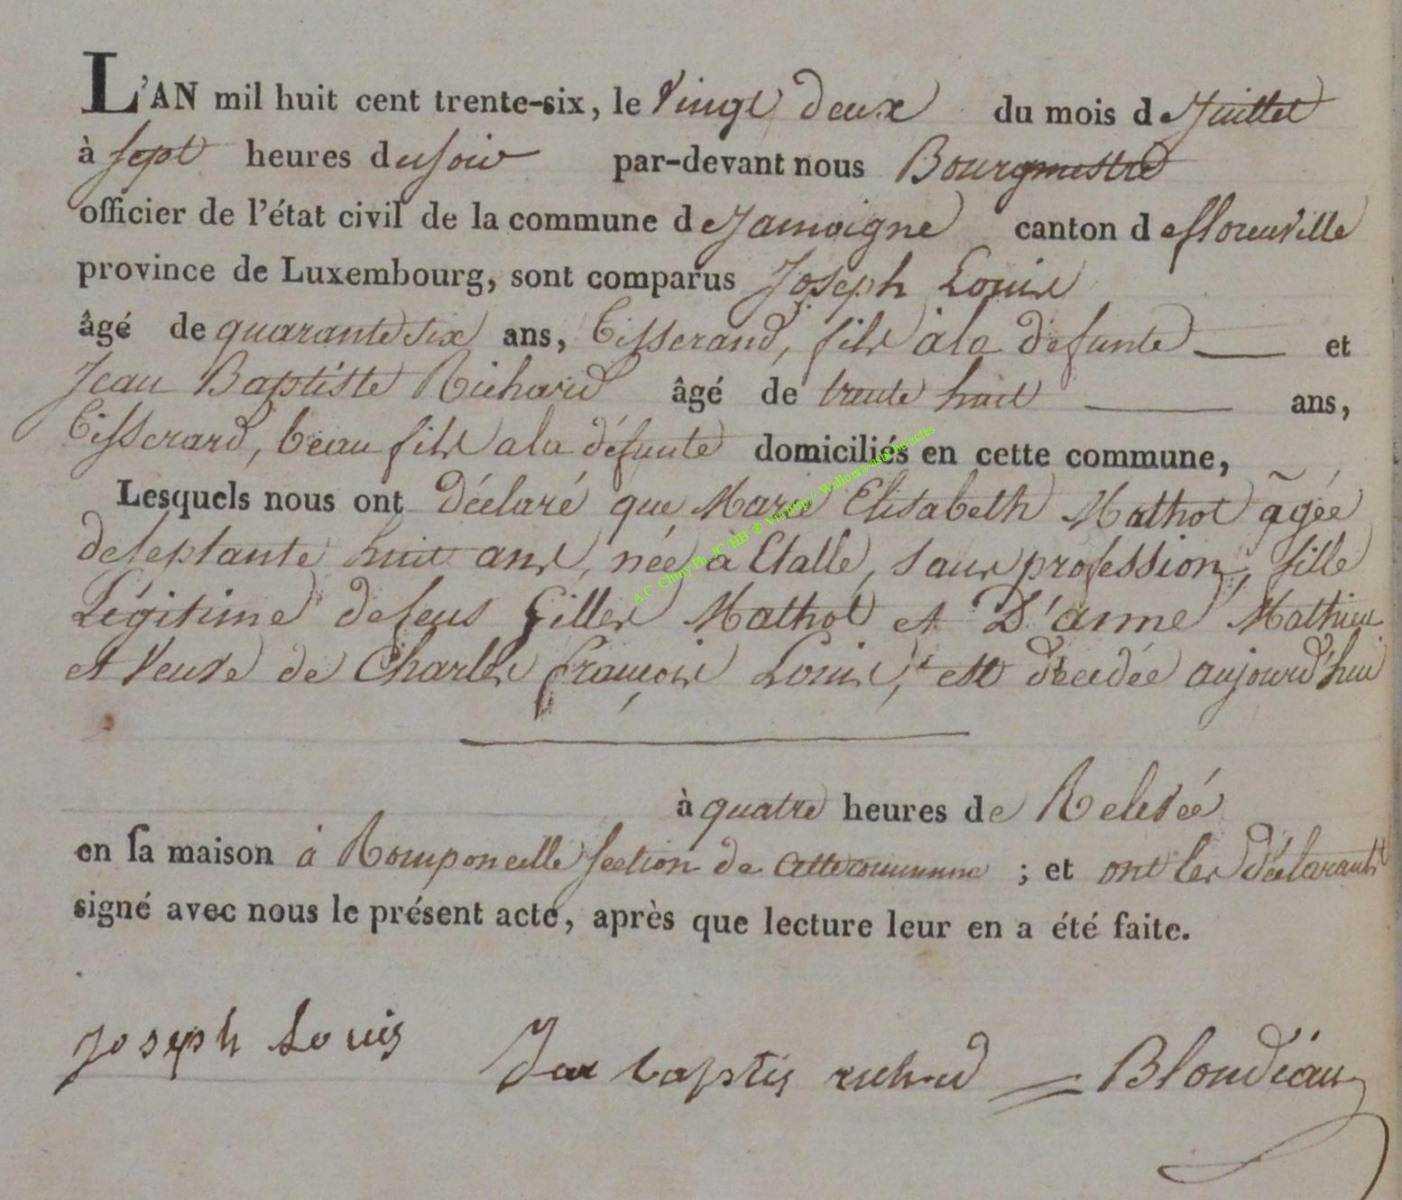 L'AN mil huit cent trente-six, le Vingt deux du mois de Juillet
à sept heures du soir par-devant nous Bourgmestre
officier de l'état civil de la commune de Jamoigne canton de florenville
province de Luxembourg, sont comparus Joseph Louis
âgé de quarante six ans, Tisserand, fils à la défunte et
Jean Baptiste Richard âgé de trente huit ans,
Tisserand, beau fils a la défunte domiciliés en cette commune,
Lesquels nous ont déclaré que Marie Elisabeth Mathot agée
de septante huit ans, née à Etalle, sans profession, fille
Légitime de feus Gilles Mathot et D'anne Mathieu
et Veuve de Charles François Louis, est décédée aujourd'hui
à quatre heures de Relevée
en sa maison à Romponcelle section de cette commune ; et ont les déclarants
signé avec nous le présent acte, après que lecture leur en a été faite.
Joseph Louis baptis richard Blondiau